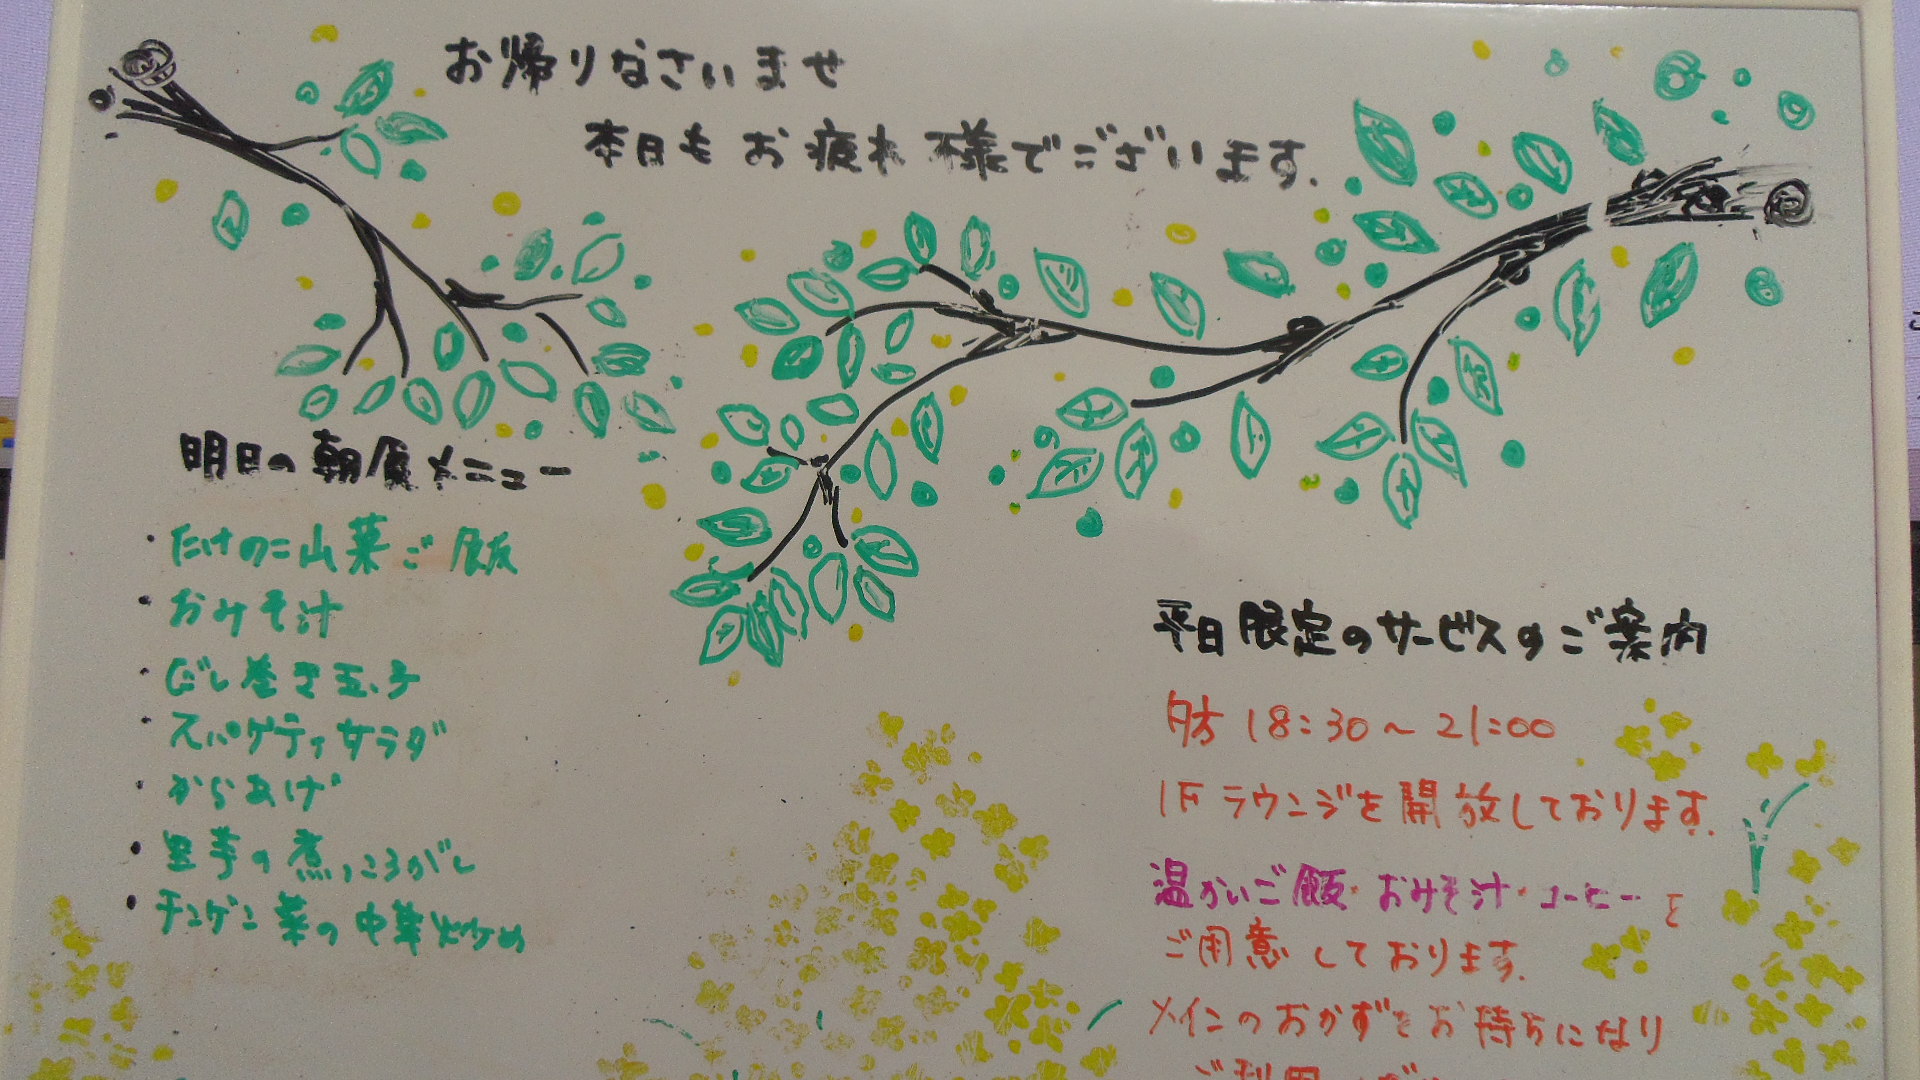 お帰りなさいませ
本日もお疲れ様でございます.
明日の朝食メニュー
・たけのこ山菜ご飯
・おみそ汁
・だし巻き玉子
・スパゲティサラダ
・からあげ
・里芋の煮っころがし
・チンゲン菜の中華炒め
平日限定のサービスのご案内
18:30～21:00
1Fラウンジを開放しております.
温かいご飯・おみそ汁・コーヒーを
ご用意しております.
メインのおかずをお持ちになり
ご利用